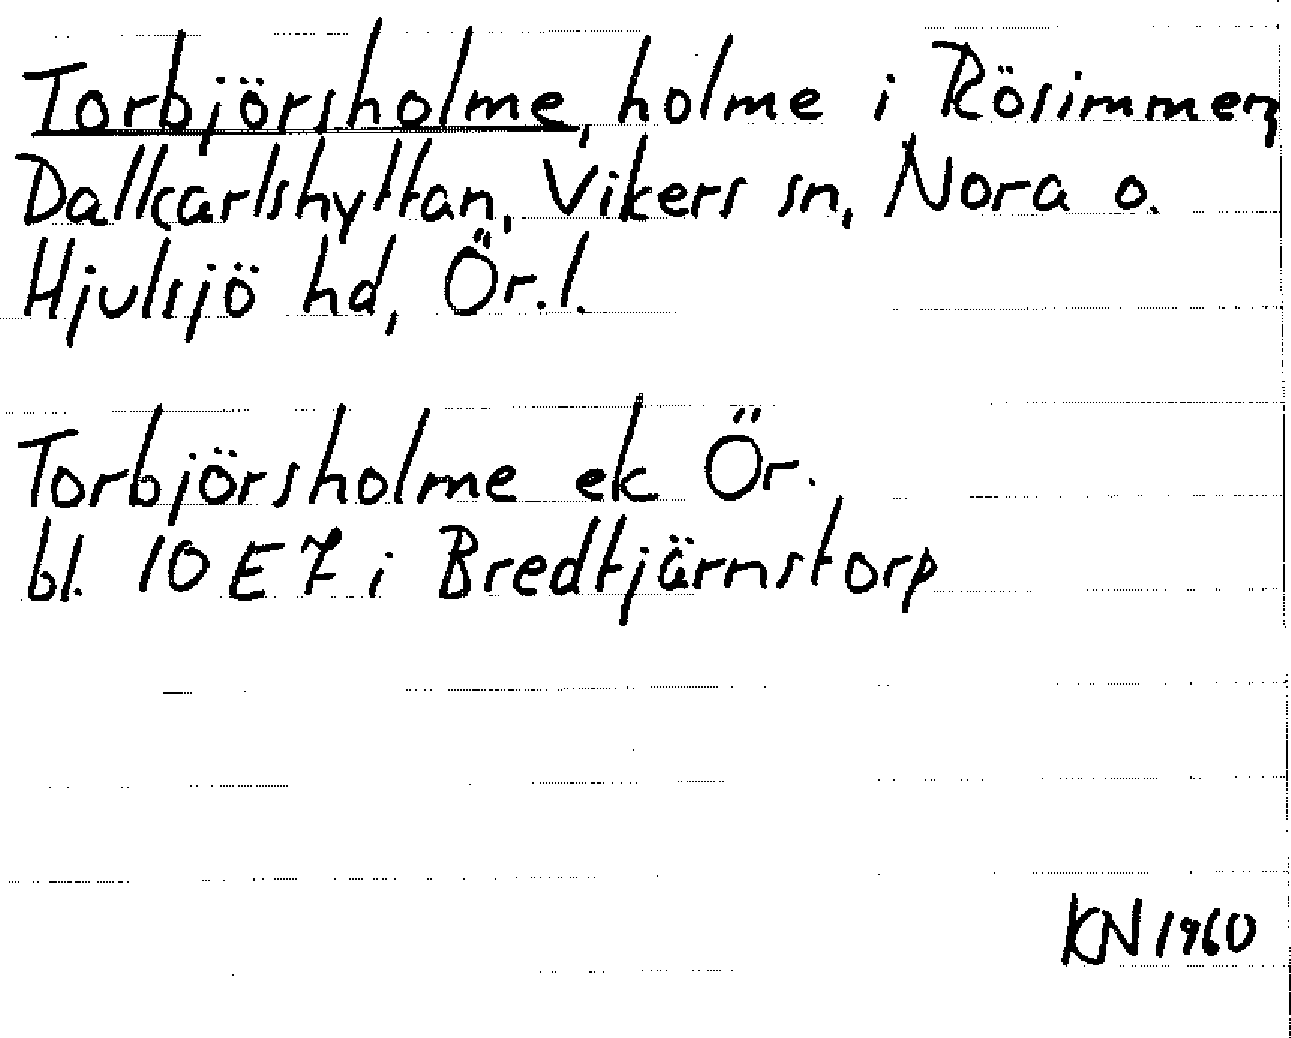 Torbjörsholme, holme i Rösimmen,
Dalkarlshyttan, Vikers sn, Nora o.
Hjulsjö hd, Ör. l.
Torbjörsholme ek Ör.
bl. 10 E 7 i Bredtjärnstorp
KN 1960